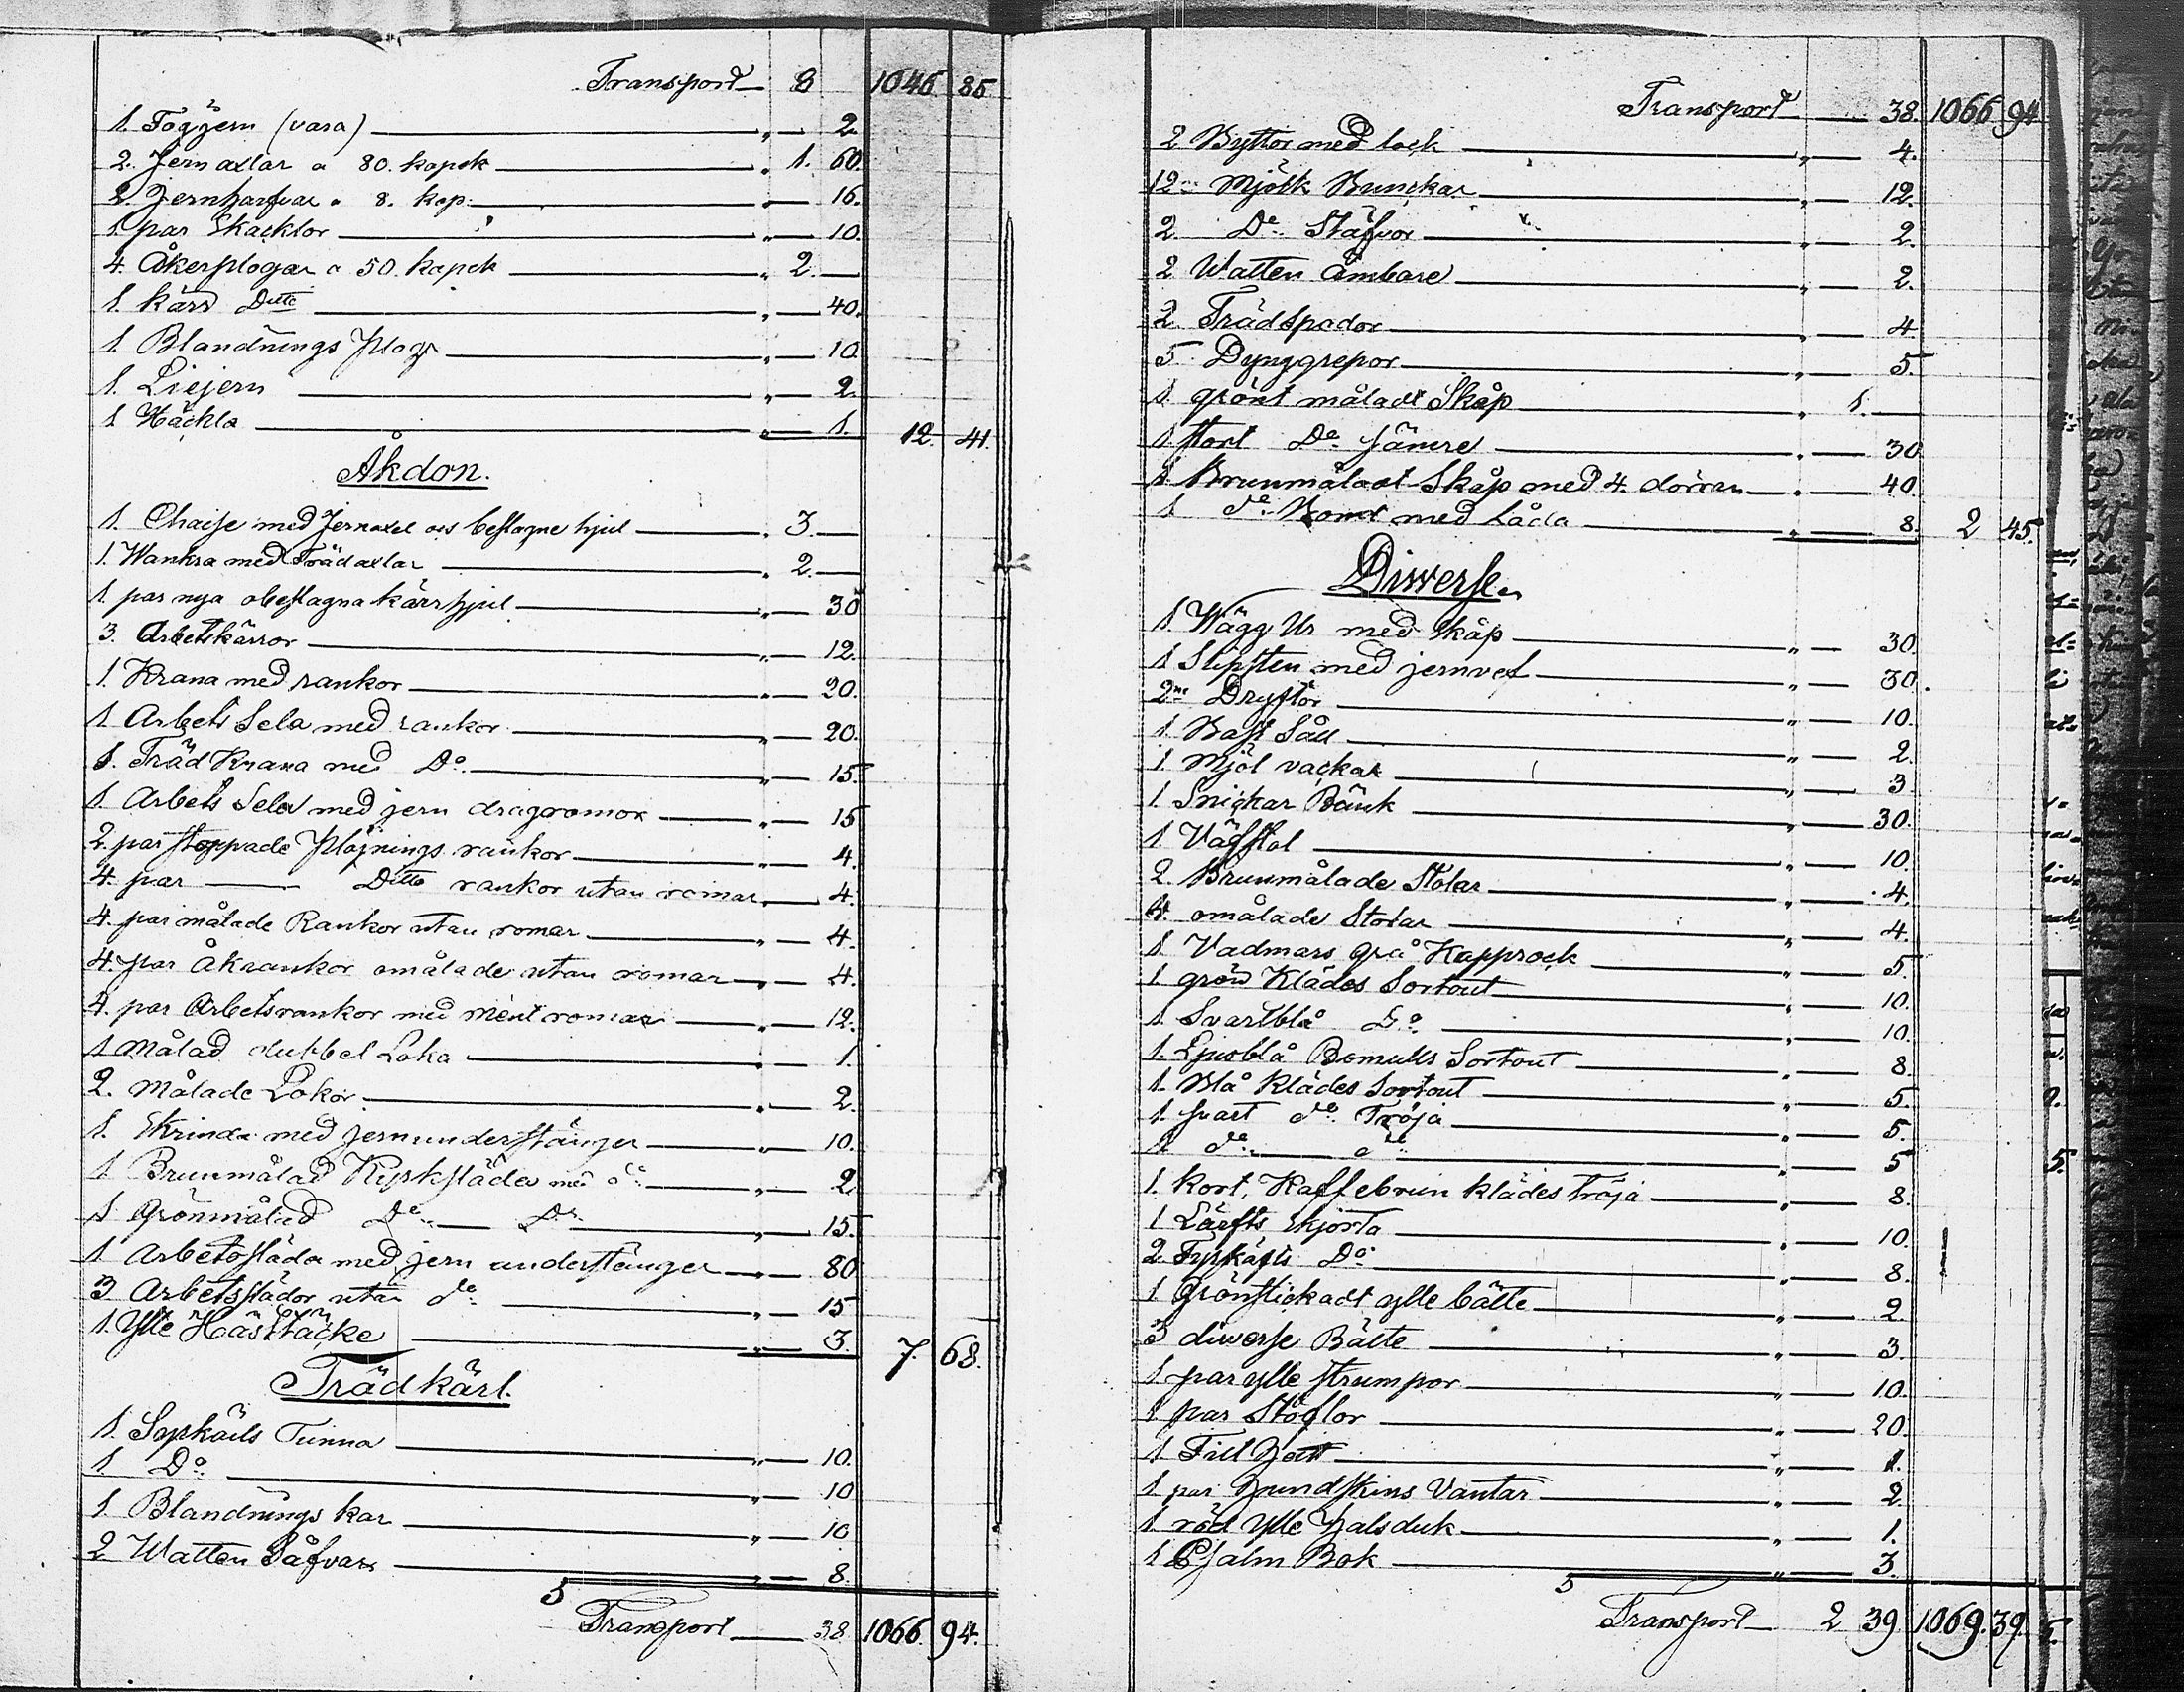 Transport 8 1046. 85.
1. Togjern (vara) " 2.
2. Jern axlar a 80. kopek " 1. 60.
2. Jernharfvar a 8. kop. " 16.
1. par Skacklor " 10.
4. Åkerplogar a 50. kopek " 2.
1. kärr Ditto " 40.
1. Blandnings plog " 10
1. Liejern " 2.
1 Häckla " 1. 12. 41.
Åkdon.
1. Chaise med Jernaxel och beslagne hjul " 3.
1. Wankra med Trädaxlar " 2.
1 par nya obeslagna kärrhjul " 30
3. Arbetskärror " 12.
1. Krana med rankor " 20.
1 Arbets Sela med rankor " 20.
1. Träd Krana med Do. " 15.
1. Arbets Sela med jern dragromor " 15
2. par stoppade plöjnings rankor " 4.
4. par Ditto rankor utan romar " 4.
4. par målade Rankor utan romar " 4.
4. par Åkrankor omålade utan romar " 4.
4. par Arbetsrankor med romar " 12.
1 Målad dubbel Loka " 1.
2. Målade Lokor " 2.
1. Skrinda med jernunderstänger " 10.
1 Brunmålad Kyrksläda med do " 2.
1 Grönmålad Do. Do. " 15.
1 Arbetssläda med jern understänger " 80
3 Arbetsslädor utan do. " 15
1. Ylle Hästtäcke " 3. 7. 68.
Trädkärl.
1. Sopkärls Tunna " 10.
1 Do. " 10
1. Blandnings kar " 10
2 Watten Såfvar " 8.
5
Transport 38 1066. 94.
Transport 38. 1066 94.
2 Byttor med lock " 4.
12 Mjölk Bunckar " 12.
2 Do. Stäfvor " 2.
2 Watten Ämbare " 2.
2 Trädspador " 4
5 Dynggrepor " 5.
1. grönt måladt Skåp " 1.
1 stort Do. sämre " 30
1 Brunmåladt Skåp med 4. dörrar " 40
1 do. Bord med Låda " 8. 2 45.
Diwerse.
1. Wägg Ur med skåp " 30.
1 Slipsten med jernvef " 30.
2ne Dryftor " 10.
1 Bast Såll " 2.
1 Mjöl vackar " 3
1 Snickar Bänk " 30.
1 Väfstol " 10.
2. Brunmålade Stolar " 4.
4. omålade Stolar " 4.
1 Vadmars grå Kapprock " 5.
1. grön Klädes Sortout " 10.
1 Svartblå Do. " 10.
1. Ljusblå Bomulls Sortout " 8.
1. Blå klädes Sortout " 5.
1 svart do. Tröja " 5.
1 do. do. " 5
1. kort, Kaffebrun klädes tröja " 8.
1 Lärfts skjorta " 10.
2 Do. " 8.
1 Grönstickadt ylle bälte " 2.
3 diwerse Bälte " 3.
1 par ylle strumpor " 10.
1 par Stöflor " 20.
1 Filt hatt " 1.
1 par hundskins Vantar " 2
1 röd ylle halsduk " 1.
1 Psalm Bok " 3.
5
Transport 2 39. 1069. 39.